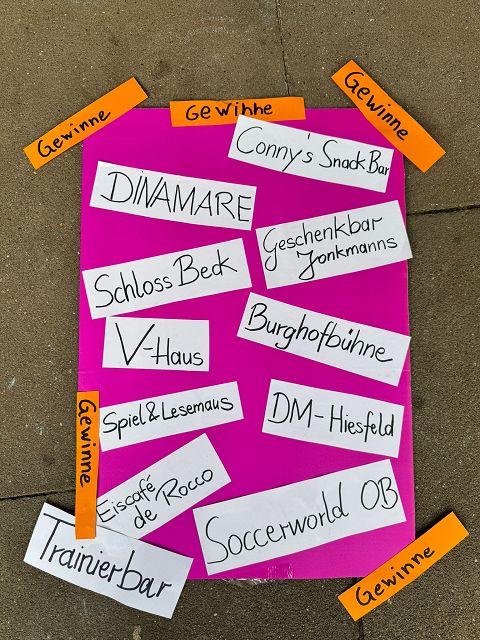 Gewinne
Gewinne
Gewinne
Conny's SnackBar
DINAMARE
Geschenkbar
Jonkmanns
Schloss Beck
Burghofbühne
V-Haus
Spiel & Lesemaus
DM-Hiesfeld
Gewinne
Eiscafé
de Rocco
Soccerworld OB
Trainierbar
Gewinne